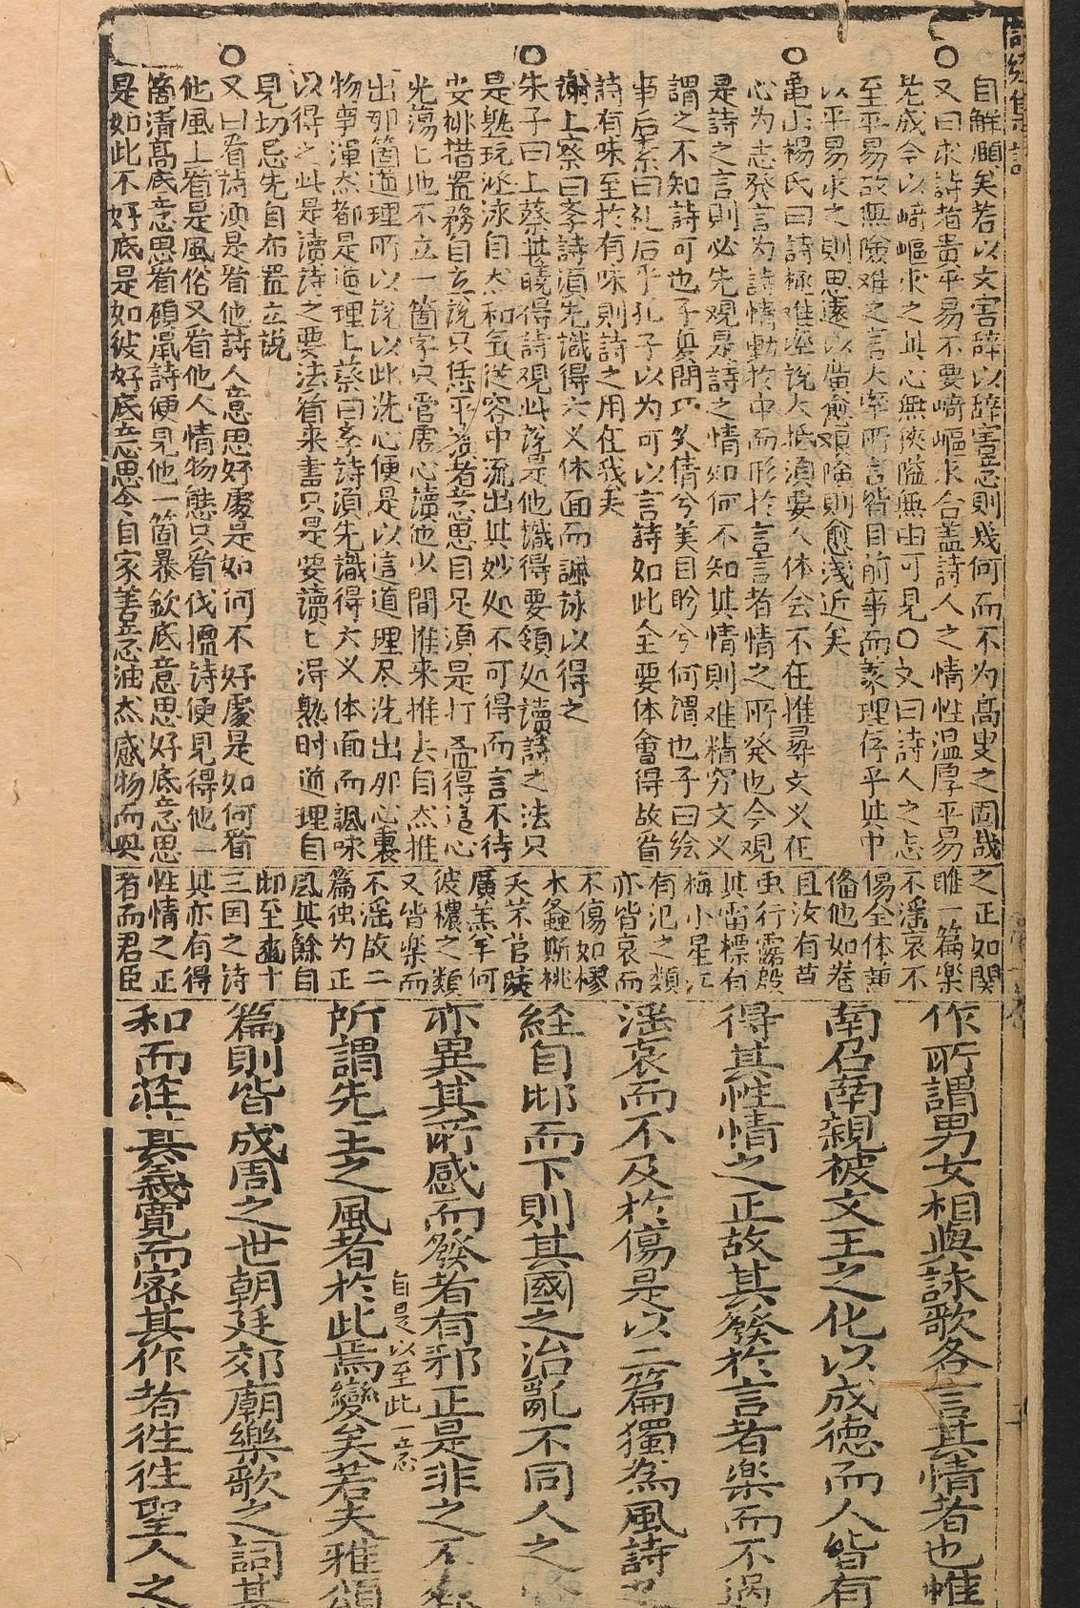 詩経集註
自解頤矣若以文害辞以辞害意則幾何而不为高叟之固哉
○又曰求詩者貴平易不要崎嶇求合盖詩人之情性温厚平易
先成今以崎嶇求之其心無狹隘無由可見○又曰詩人之志
至平易故無險难之言大率所言皆目前事而義理存乎其中
以平易求之則思遠以廣愈艱險則愈浅近矣
○亀山楊氏曰詩極难卒說大抵湏要人体会不在推尋文义在
心为志発言为詩情動於中而形於言言者情之所発也今観
是詩之言則必先观是詩之情如何不知其情則难精穷文义
謂之不知詩可也子夏問巧笑倩兮美目盼兮何谓也子曰绘
事后素曰礼后乎孔子以为可以言詩如此全要体會得故省
詩有味至於有味則詩之用在我矣
謝上蔡曰学詩湏先識得六义体面而諷詠以得之
○朱子曰上蔡其曉得詩观此說是他識得要領処讀詩之法只
是熟玩涵泳自然和气從容中流出其妙処不可得而言不待
安排措置務自立說只恁平讀着意思自足湏是打疊得這心
光蕩ヒ地不立一箇字只管虚心讀他少間推来推去自然推
出那箇道理所以说以此洗心便是以這道理尽洗出那心裏
物事渾然都是道理上蔡曰学詩湏先識得六义体面而諷味
以得之此是讀詩之要法看来書只是要讀ヒ得熟时道理自
見切忌先自布置立說
○又曰看詩湏是看他詩人意思好處是如何不好處是如何看
他風土看是風俗又看他人情物態只看伐檀诗便見得他一
箇清高底意思看碩鼠詩便見他一箇暴歛底意思好底意思
是如此不好底是如彼好底意思令自家善意油然感物而興
之正如関
雎一篇樂
不滛哀不
傷全体誦
備他如卷
耳汝有苗
虫行露殷
其雷標有
梅小星江
有氾之類
亦皆哀而
不傷如樛
木螽斯桃
夭芣苢
廣羔羊何
彼穠之類
又皆楽而
不滛故二
篇独为正
風其餘自
邶至豳十
三国之诗
其亦有得
性情之正
者而君臣
作所謂男女相與詠歌各言其情者也惟
南召南親被文王之化以成徳而人皆有
得其性情之正故其發於言者楽而不過
滛哀而不及於傷是以二篇獨為風詩
経自邶而下則其國之治亂不同人之
亦異其所感而發者有邪正是非之不
自是以至此一意
所謂先王之風者於此焉變矣若夫雅頌
篇則皆成周之世朝廷郊廟樂歌之詞其
和而莊其義寛而密其作者徃徃聖人之